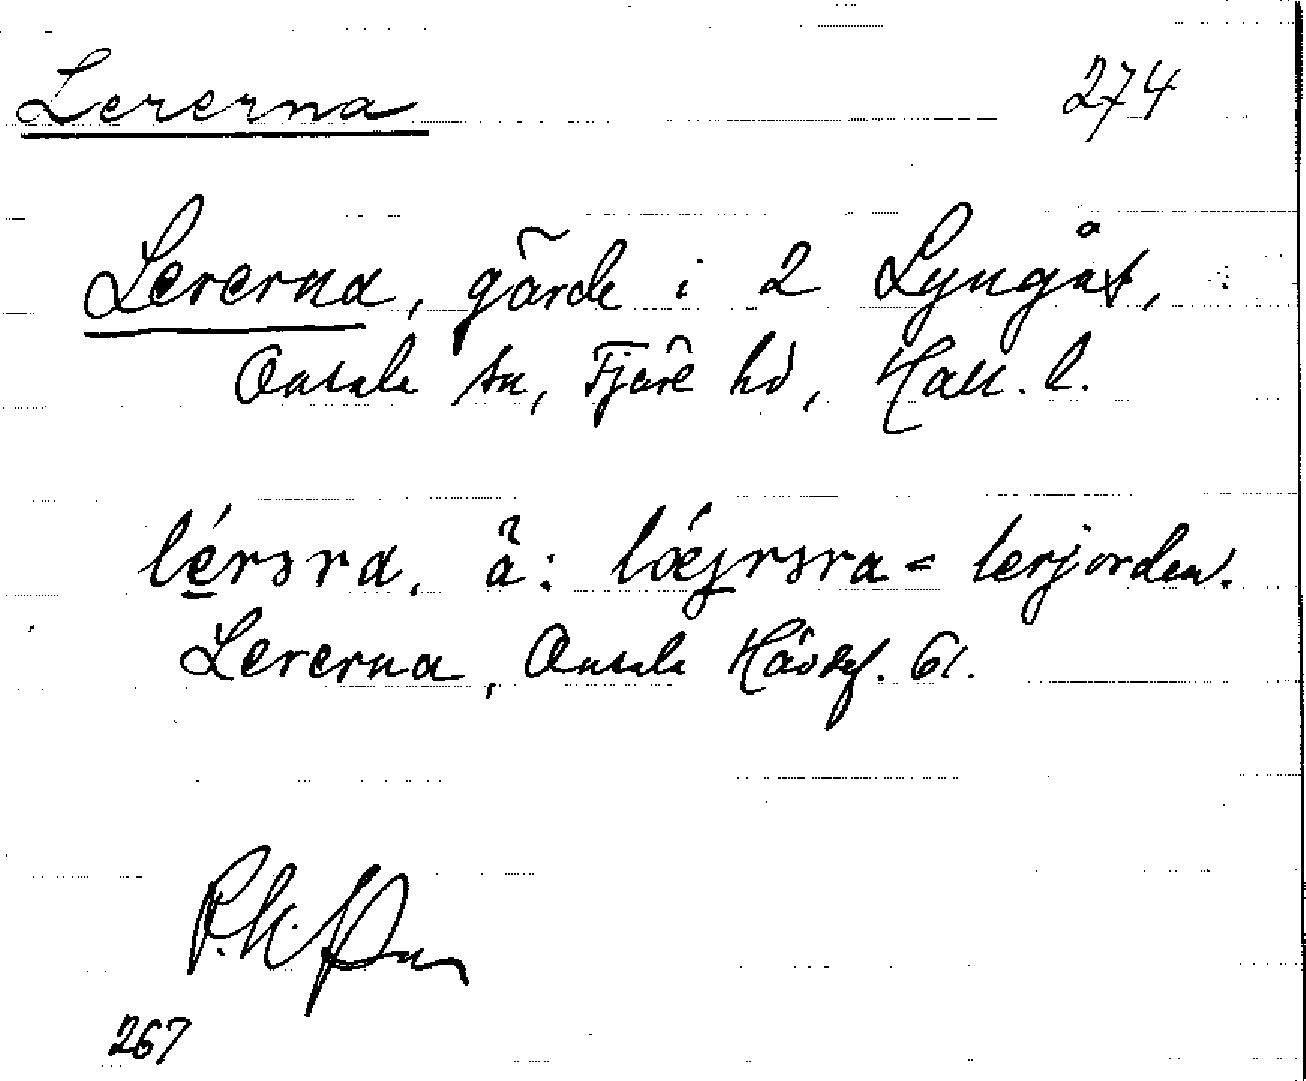 Lererna 274
Lererna, gärde i 2 Lyngås,
Onsala sn, Fjäre hd, Hall. l.
lérɜra, ä: lǽjrɜra = lerjorden.
Lererna, Onsala Hävdef. 61.
267